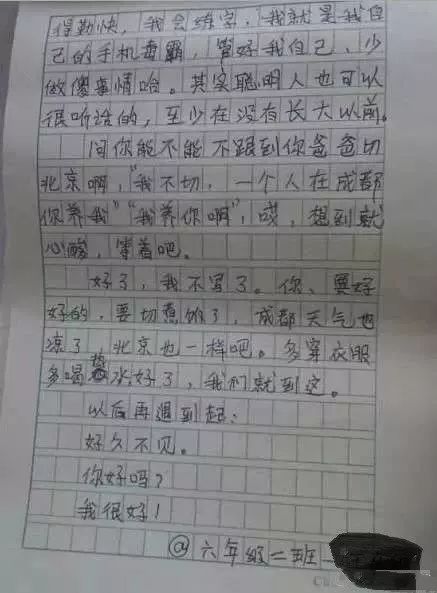 得勤快，我会练字，我就是我自
己的手机毒霸，管好我自己，少
做傻事情哈。其实聪明人也可以
很听话的，至少在没有长大以前。
问你能不能不跟到你爸爸切
北京啊，"我不切，一个人在成都
你养我""我养你啊"，哎，想到就
心酸，等着吧。
好了，我不写了。你、要好
好的，要切煮饭了，成都天气也
凉了，北京也一样吧。多穿衣服
多喝热水好了，我们就到这。
以后再遇到起：
好久不见。
你好吗？
我很好！
@六年级二班